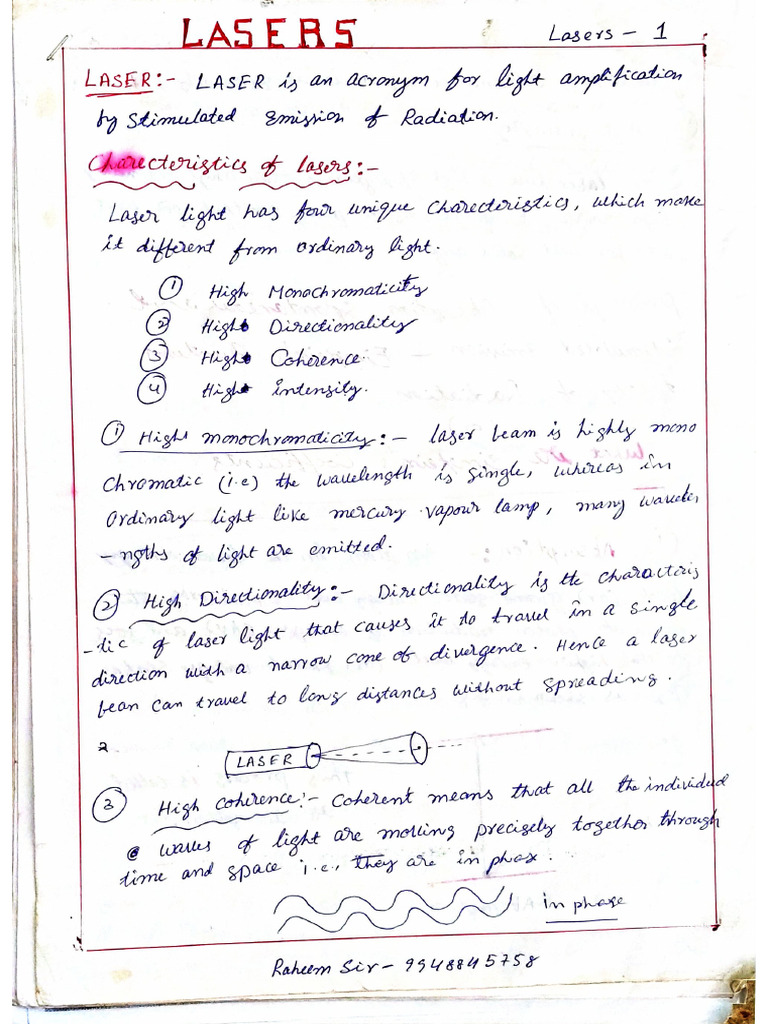 LASERS
Lasers - 1
LASER:- LASER is an acronym for light amplification
by Stimulated Emission of Radiation.
Charecteristics of lasers:-
Laser light has four unique charecteristics, which make
it different from ordinary light.
① High Monochromaticity
② High Directionality
③ High Coherence.
④ High intensity.
① High monochromaticity:- laser beam is highly mono
chromatic (i.e) the wavelength is single, whereas in
ordinary light like mercury vapour lamp, many wavele
-ngths of light are emitted.
② High Directionality:- Directionality is the characteris
-tic of laser light that causes it to travel in a single
direction with a narrow cone of divergence. Hence a laser
bean can travel to long distances without spreading.
2
LASER
③ High coherence:- Coherent means that all the individual
waves of light are moving precisely together through
time and space i.e., they are in phase.
in phase
Raheem Sir - 9948845758